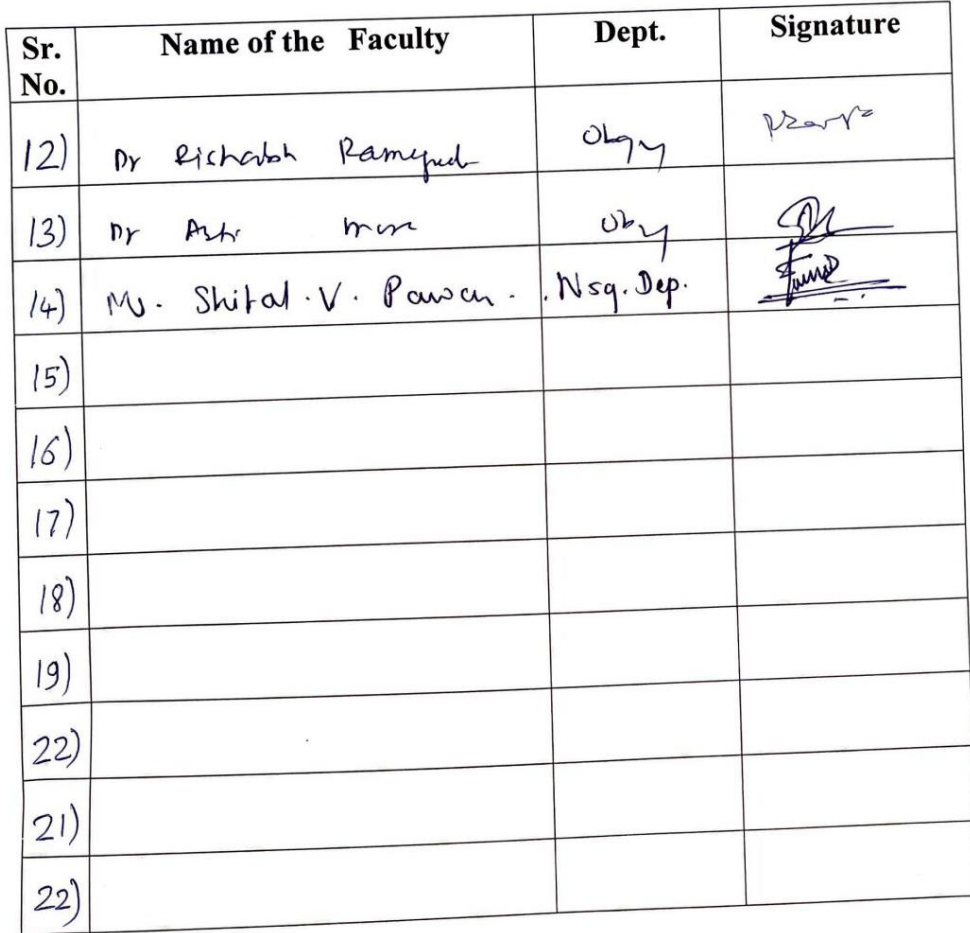 Sr. No. Name of the Faculty Dept. Signature
12) Dr Rishabh Obgy
13) Dr Obgy
14) Ms. Shital. V. Pawar. . Nsg. Dep.
15)
16)
17)
18)
19)
22)
21)
22)